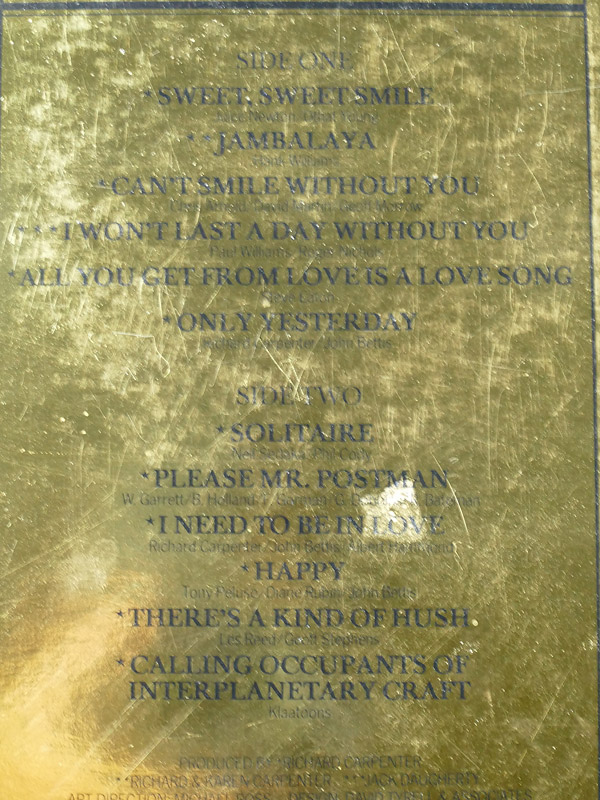 SIDE ONE
*SWEET, SWEET SMILE
Juice Newton/Othat Young
**JAMBALAYA
Hank Williams
*CAN'T SMILE WITHOUT YOU
Chris Arnold/David Martin/Geoff Morrow
***I WON'T LAST A DAY WITHOUT YOU
Paul Williams/Roger Nichols
*ALL YOU GET FROM LOVE IS A LOVE SONG
Steve Eaton
*ONLY YESTERDAY
Richard Carpenter/John Bettis
SIDE TWO
*SOLITAIRE
Neil Sedaka/Phil Cody
*PLEASE MR. POSTMAN
W. Garrett/B. Holland/F. Gorman/G. Bateman
*I NEED TO BE IN LOVE
Richard Carpenter/John Bettis/Albert Hammond
*HAPPY
Tony Peluso/Diane Rubin/John Bettis
*THERE'S A KIND OF HUSH
Les Reed/Geoff Stephens
*CALLING OCCUPANTS OF
INTERPLANETARY CRAFT
Klaatoons
PRODUCED BY *RICHARD CARPENTER
**RICHARD & KAREN CARPENTER ***JACK DAUGHERTY
ART DIRECTION: MICHAEL ROSS DESIGN: DAVID TYRELL & ASSOCIATES